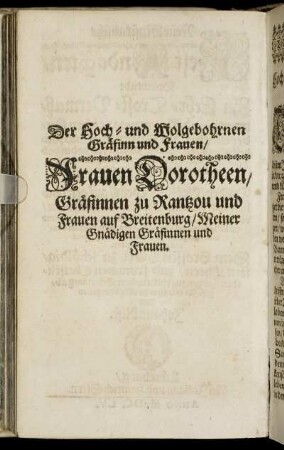 Der Hoch- und Wolgebohrnen
Gräfinn und Frauen/
Frauen Dorotheen/
Gräfinnen zu Rantzou und
Frauen auf Breitenburg/ Meiner
Gnädigen Gräfinnen und
Frauen.